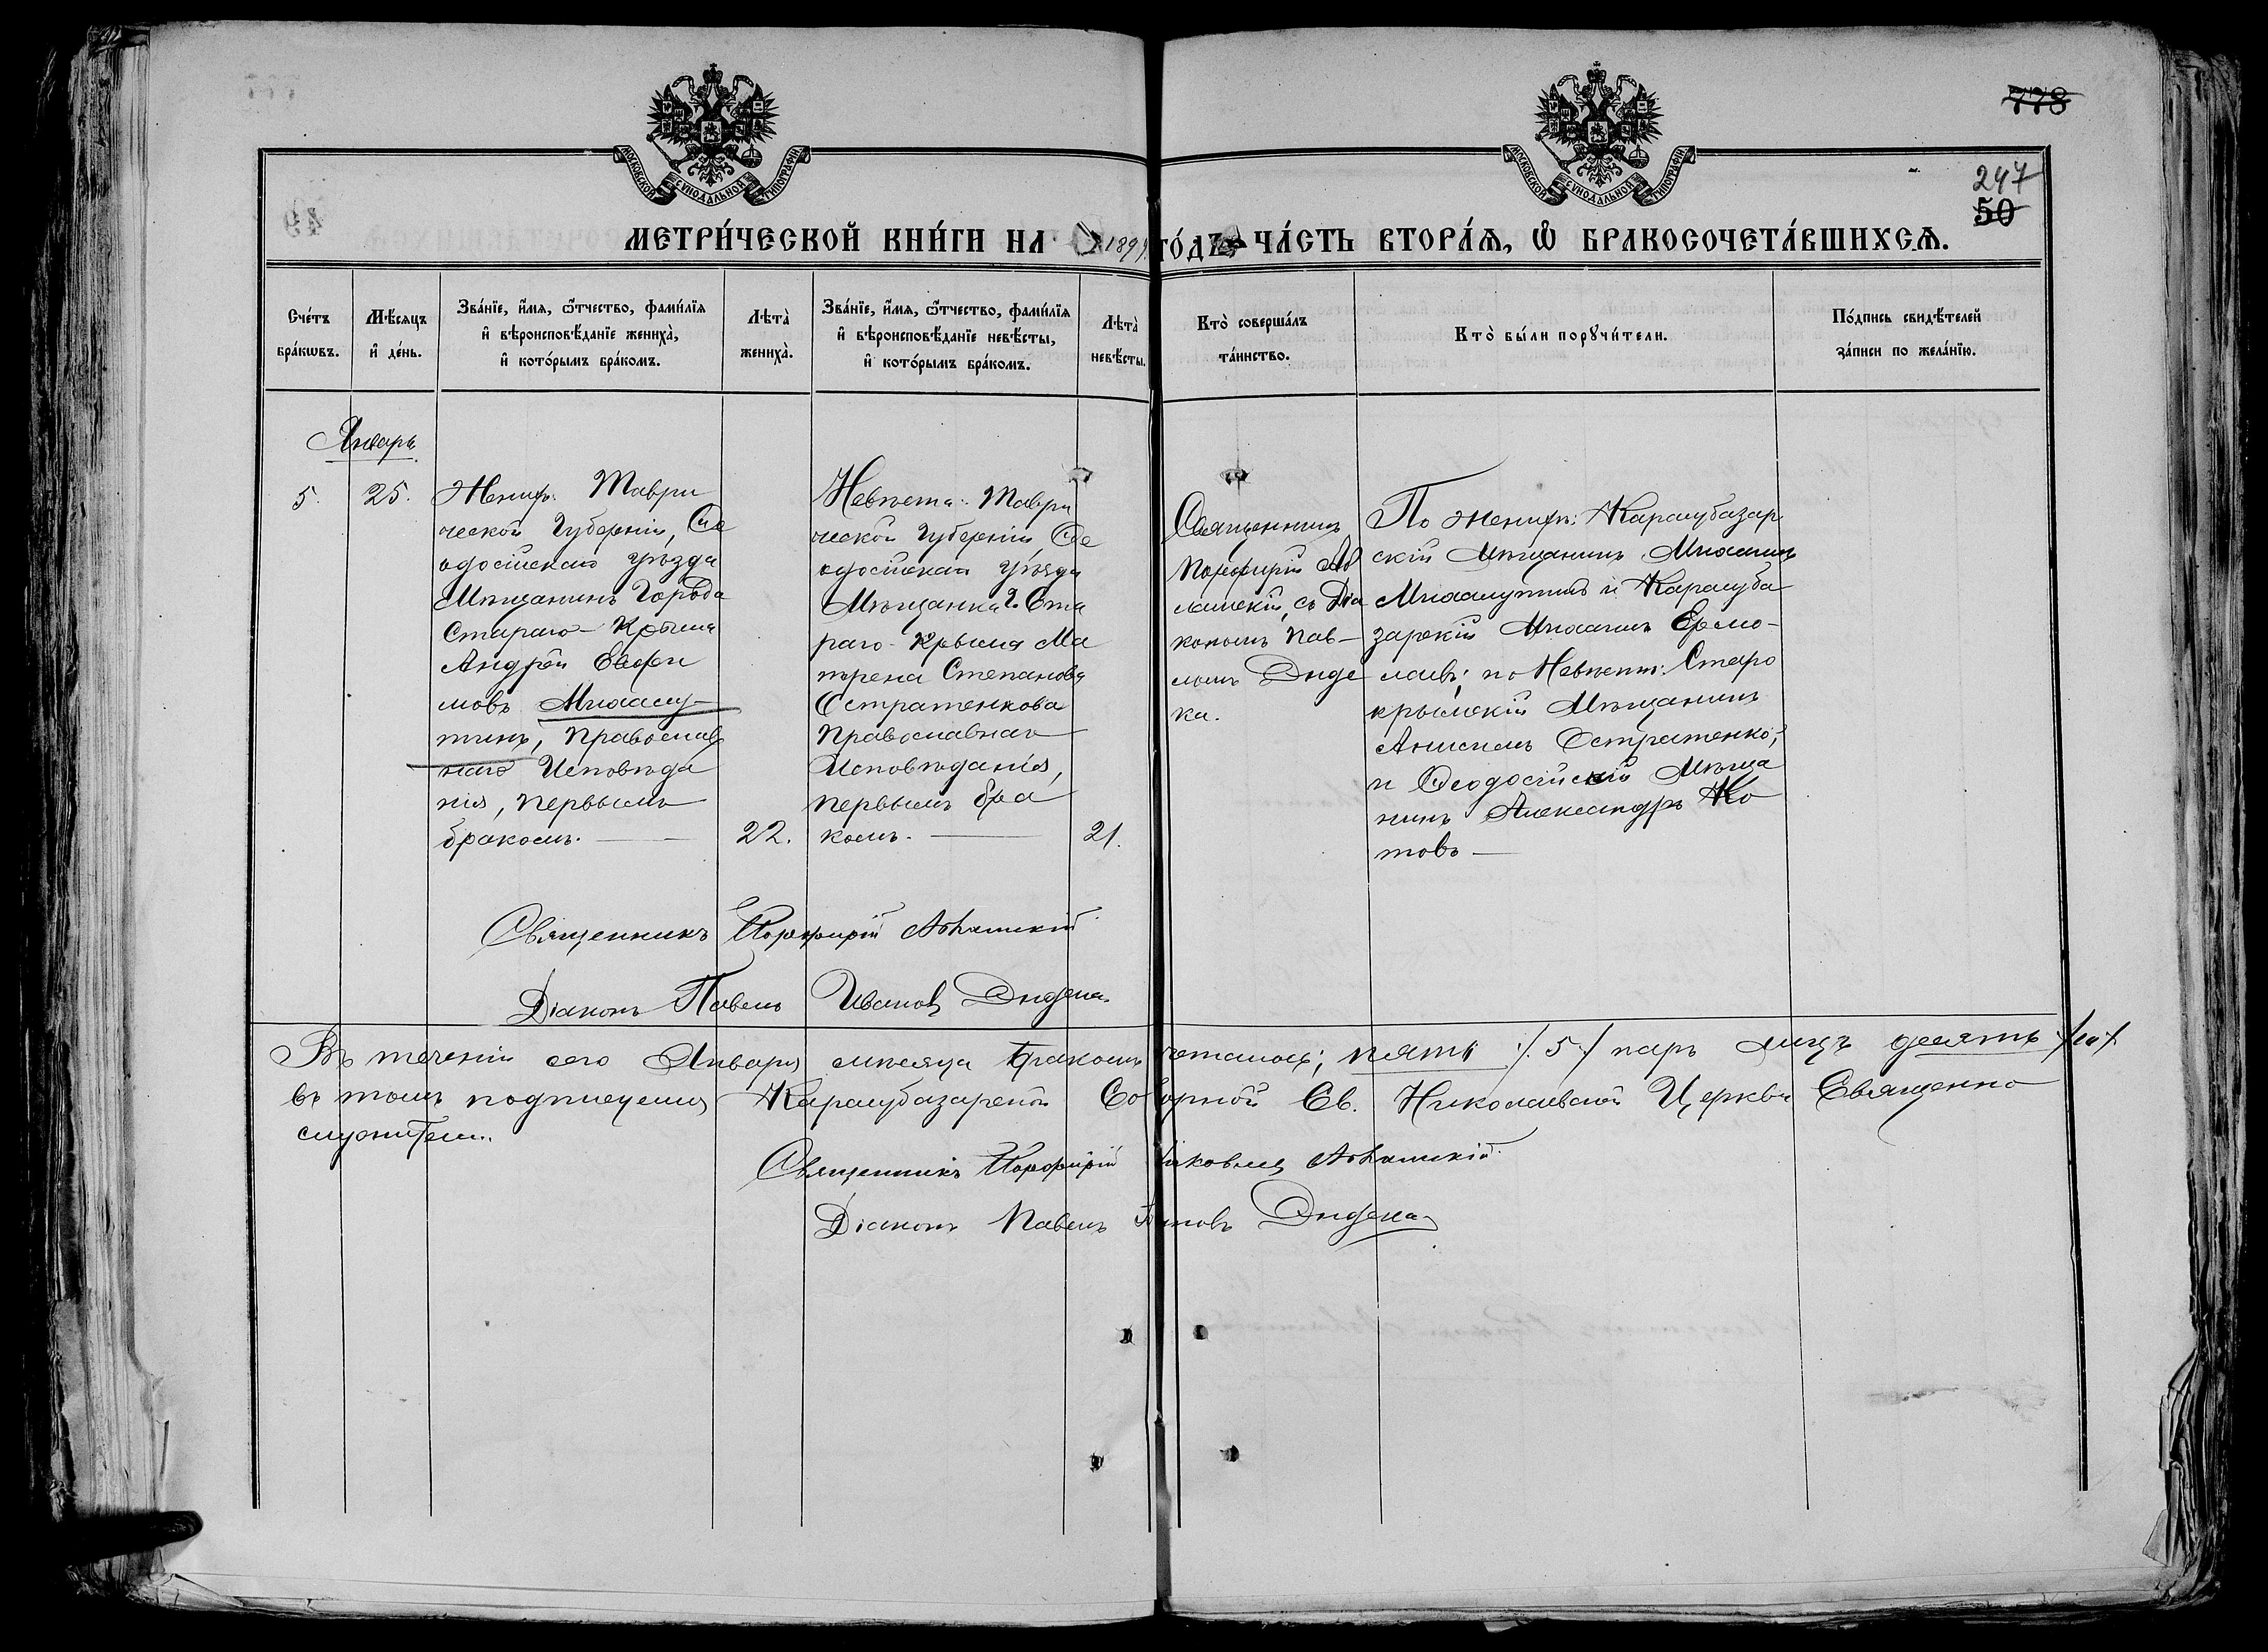 778
247
50
МОСКОВСКОЙ СѴНОДАЛЬНОЙ ТИПОГРАФІИ
МОСКОВСКОЙ СѴНОДАЛЬНОЙ ТИПОГРАФІИ
МЕТРИ́ЧЕСКОЙ КНИ́ГИ НА 1899 ГО́ДЪ ЧА́СТЬ ВТОРА́Я, Ѡ БРАКОСОЧЕТА́ВШИХСѦ.
Сче́тъ бра́кѡвъ.
Мѣ́сяцъ и҆ де́нь.
Зва́нїе, и҆́мя, ѻ҆́тчество, фами́лїя
и҆ вѣроисповѣ́данїе жениха̀,
и҆ кото́рымъ бра́комъ.
Лѣта̀ жениха̀.
Зва́нїе, и҆́мя, ѻ҆́тчество, фами́лїя
и҆ вѣроисповѣ́данїе невѣ́сты,
и҆ кото́рымъ бра́комъ.
Лѣта̀ невѣ́сты.
Кто̀ соверша́лъ
та́инство.
Кто̀ бы́ли порꙋчи́тели.
По́дпись свидѣ́телей
за́писи по жела́нїю.
Январь
5.
25.
Женихъ: Таври
ческой Губерніи, Ѳе
одосійскаго уѣзда
Мѣщанинъ Города
Стараго-Крыма
Андрей Евфи
мовъ
тинъ, Православ
наго Исповѣда
нія, первымъ
бракомъ.
22.
Невѣста: Таври
ческой Губерніи Ѳе
одосійскаго уѣзда
Мѣщанка г. Ста
раго-Крыма Ма
трена Степанова
Остратенкова
Православнаго
Исповѣданія,
первымъ бра
комъ.
21.
Священникъ
Порфирій
съ Діа
кономъ Пав-
ломъ Диде
ка.
По женихѣ: Карасубазар
скій Мѣщанинъ Михаилъ
и Карасуба
зарскій Михаилъ Ермо-
лаевъ; по Невѣстѣ: Старо
крымскій Мѣщанинъ
Анисимъ Остратенко;
и Ѳеодосійскій Мѣща
нинъ Александръ Ко
товъ
Священникъ Порфирій
Діаконъ Павелъ Ивановъ Дидека
Въ теченіи сего Января мѣсяца бракомъ сочеталось; пять /. 5 ./ паръ лицъ десять /.10./
въ томъ подписуемся Карасубазарской Соборной Св. Николаевской Церкви Священно
служители.
Священникъ Порфирій
Діаконъ Павелъ Ивановъ Дидека